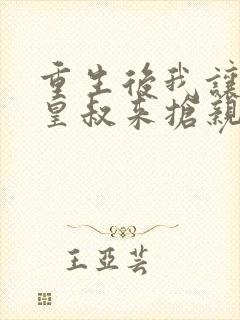 重生後我讓
皇叔來搶親
王亞芸